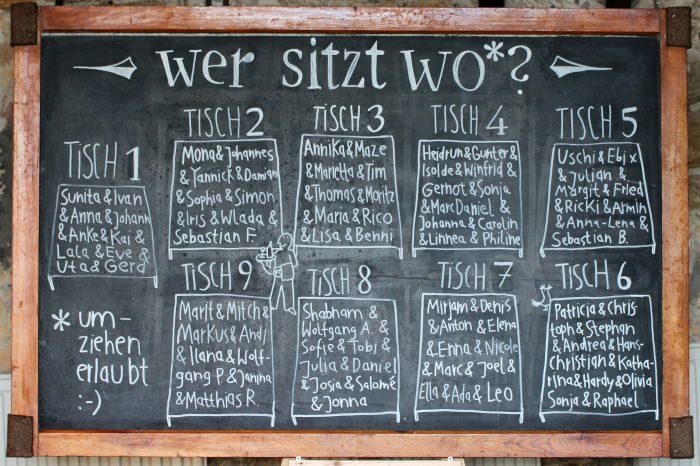 wer sitzt wo*?
TISCH 1
Sunita & Ivan
& Anna & Johann
& Anke & Kai &
Lala & Eve &
Uta & Gerd
TISCH 2
Mona & Johannes
& Yannick & Damian
& Sophia & Simon
& Iris & Wlada &
Sebastian F.
TISCH 3
Annika & Maze
& Marietta & Tim
& Thomas & Moritz
& Maria & Rico
& Lisa & Benni
TISCH 4
Heidrun & Gunter &
Isolde & Winfrid &
Gernot & Sonja
& Marc Daniel &
Johanna & Carolin
& Linnea & Philine
TISCH 5
Uschi & Ebi x
& Julian &
Margit & Fried
& Ricki & Armin
& Anna-Lena &
Sebastian B.
TISCH 9
Marit & Mitch &
Markus & Andi
& Ilana & Wolf-
gang P & Janina
& Matthias R.
TISCH 8
Shabnam &
Wolfgang A. &
Sofie & Tobi &
Julia & Daniel
& Josia & Salomé
& Jonna
TISCH 7
Mirjam & Denis
& Anton & Elena
& Enna & Nicole
& Marc & Joel &
Ella & Ada & Leo
TISCH 6
Patricia & Chris-
toph & Stephan
& Andrea & Hans-
Christian & Katha-
rina & Hardy & Olivia
Sonja & Raphael
* um-
ziehen
erlaubt
:-)